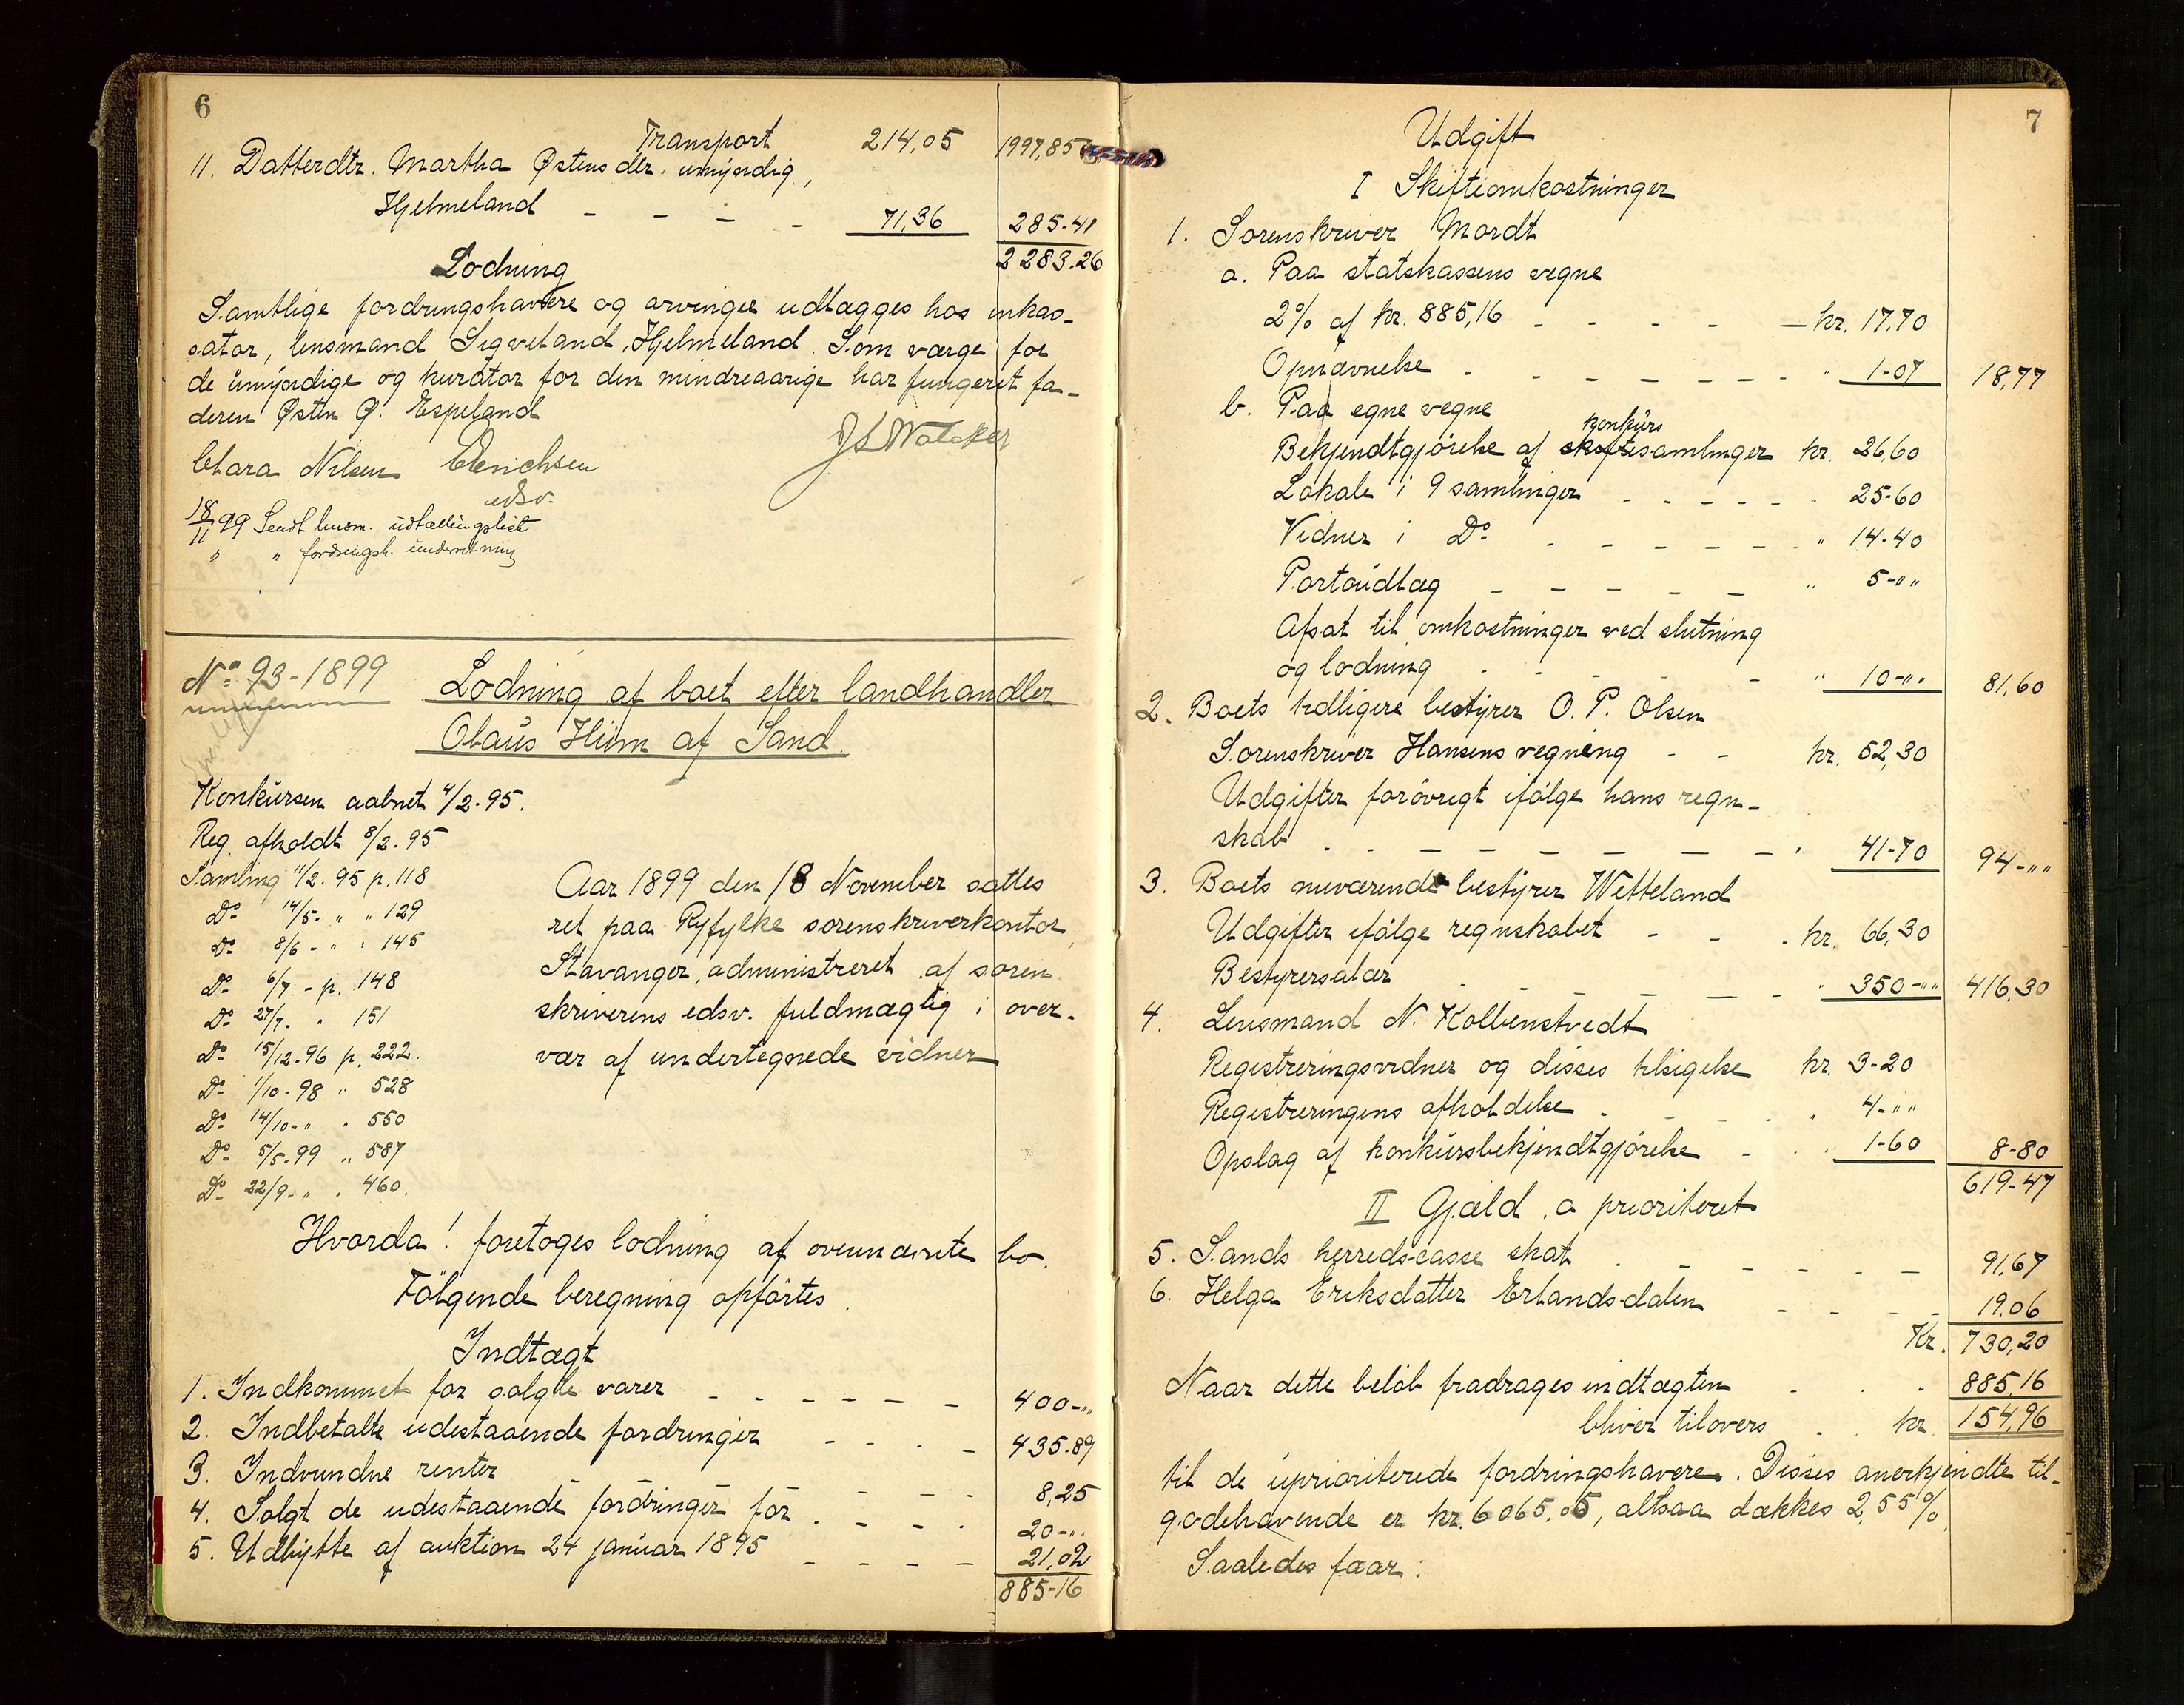 6
Transport 214,05 1997,85
11. Datterdtr. Martha Østens dtr. umyndig,
Hjelmeland - - - - 71,36 285-41
2283.26
Lodning
Samtlige fordringshavere og arvinger udlægges hos inkas-
sator, lensmand Sigveland, Hjelmeland. Som værge for
de umyndige og kurator for den mindreaarige har fungeret fa-
deren Østen Ø. Espeland
Clara Nilsen Erichsen
edsv.
18/11 99 Sendt lensm. udtællingsliste
" " fordringsh. underretning
No 93-1899 Lodning af boet efter landhandler
Olaus Hiim af Sand.
Konkursen aabnet 4/2.95.
Reg. afholdt 8/2.95
Samling 11/2.95 p. 118
Do 14/5- " " 129
Do 8/6 - " " 145
Do 6/7 - p. 148
Do 27/7. " 151
Do 15/12.96 p. 222.
Do 1/10-98 " 528
Do 14/10-" " 550
Do 5/5-99 " 587
Do 22/9-" " 460.
Aar 1899 den 18 November sattes
ret paa Ryfylke sorenskriverkontor,
Stavanger, administreret af soren
skriverens edsv. fuldmægtig i over-
vær af undertegnede vidner
Hvorda! foretoges lodning af ovennævnte bo.
Følgende beregning opførtes.
Indtægt
1. Indkommet for solgte varer - - - - - 400-""
2. Indbetalte udestaaende fordringer - - - - 435.89
3. Indvundne renter - - - - 8,25
4. Solgt de udestaaende fordringer for - - - - 20-""
5. Udbytte af auktion 24 januar 1895 - - - - 21,02
885-16
7
Udgift
I Skifteomkostninger
1. Sorenskriver Mordt
a. Paa statskassens vegne
2% af kr. 885,16 - - - - kr. 17.70
Opnævnelse - - - - - - - " 1-07 18,77
b. Paa egne vegne
konkurs
Bekjendtgjørelse af skiftesamlinger kr. 26,60
Lokale i 9 samlinger - - - - - " 25-60
Vidner i Do - - - - - " 14-40
Portoudlæg - - - - - " 5-""
Afsat til omkostninger ved slutning
og lodning - - - - " 10-"" 81,60
2. Boets tidligere bestyrer O. P. Olsen
Sorenskriver Hansens regning - - kr. 52,30
Udgifter forøvrigt ifølge hans regn-
skab - - - - - - - " 41-70 94-""
3. Boets nuværende bestyrer Wetteland
Udgifter ifølge regnskabet - - - kr. 66,30
Bestyrersalær - - - - - - " 350-"" 416,30
4. Lensmand N. Kolbenstvedt
Registreringsvidner og disses tilsigelse kr. 3-20
Registreringens afholdelse - - - - " 4-""
Opslag af konkursbekjendtgjørelse - - " 1-60 8-80
619-47
II Gjæld. a prioriteret
5. Sands herredscasse skat - - - - - - 91,67
6. Helga Eriksdatter Erlandsdalen - - - - 19.06
Kr. 730,20
Naar dette beløb fradrages indtægten - - - 885,16
bliver tilovers - - kr. 154,96
til de uprioriterede fordringshavere. Disses anerkjendte til-
godehavende er kr. 6065,05, altsaa dækkes 2,55%.
Saaledes faar: